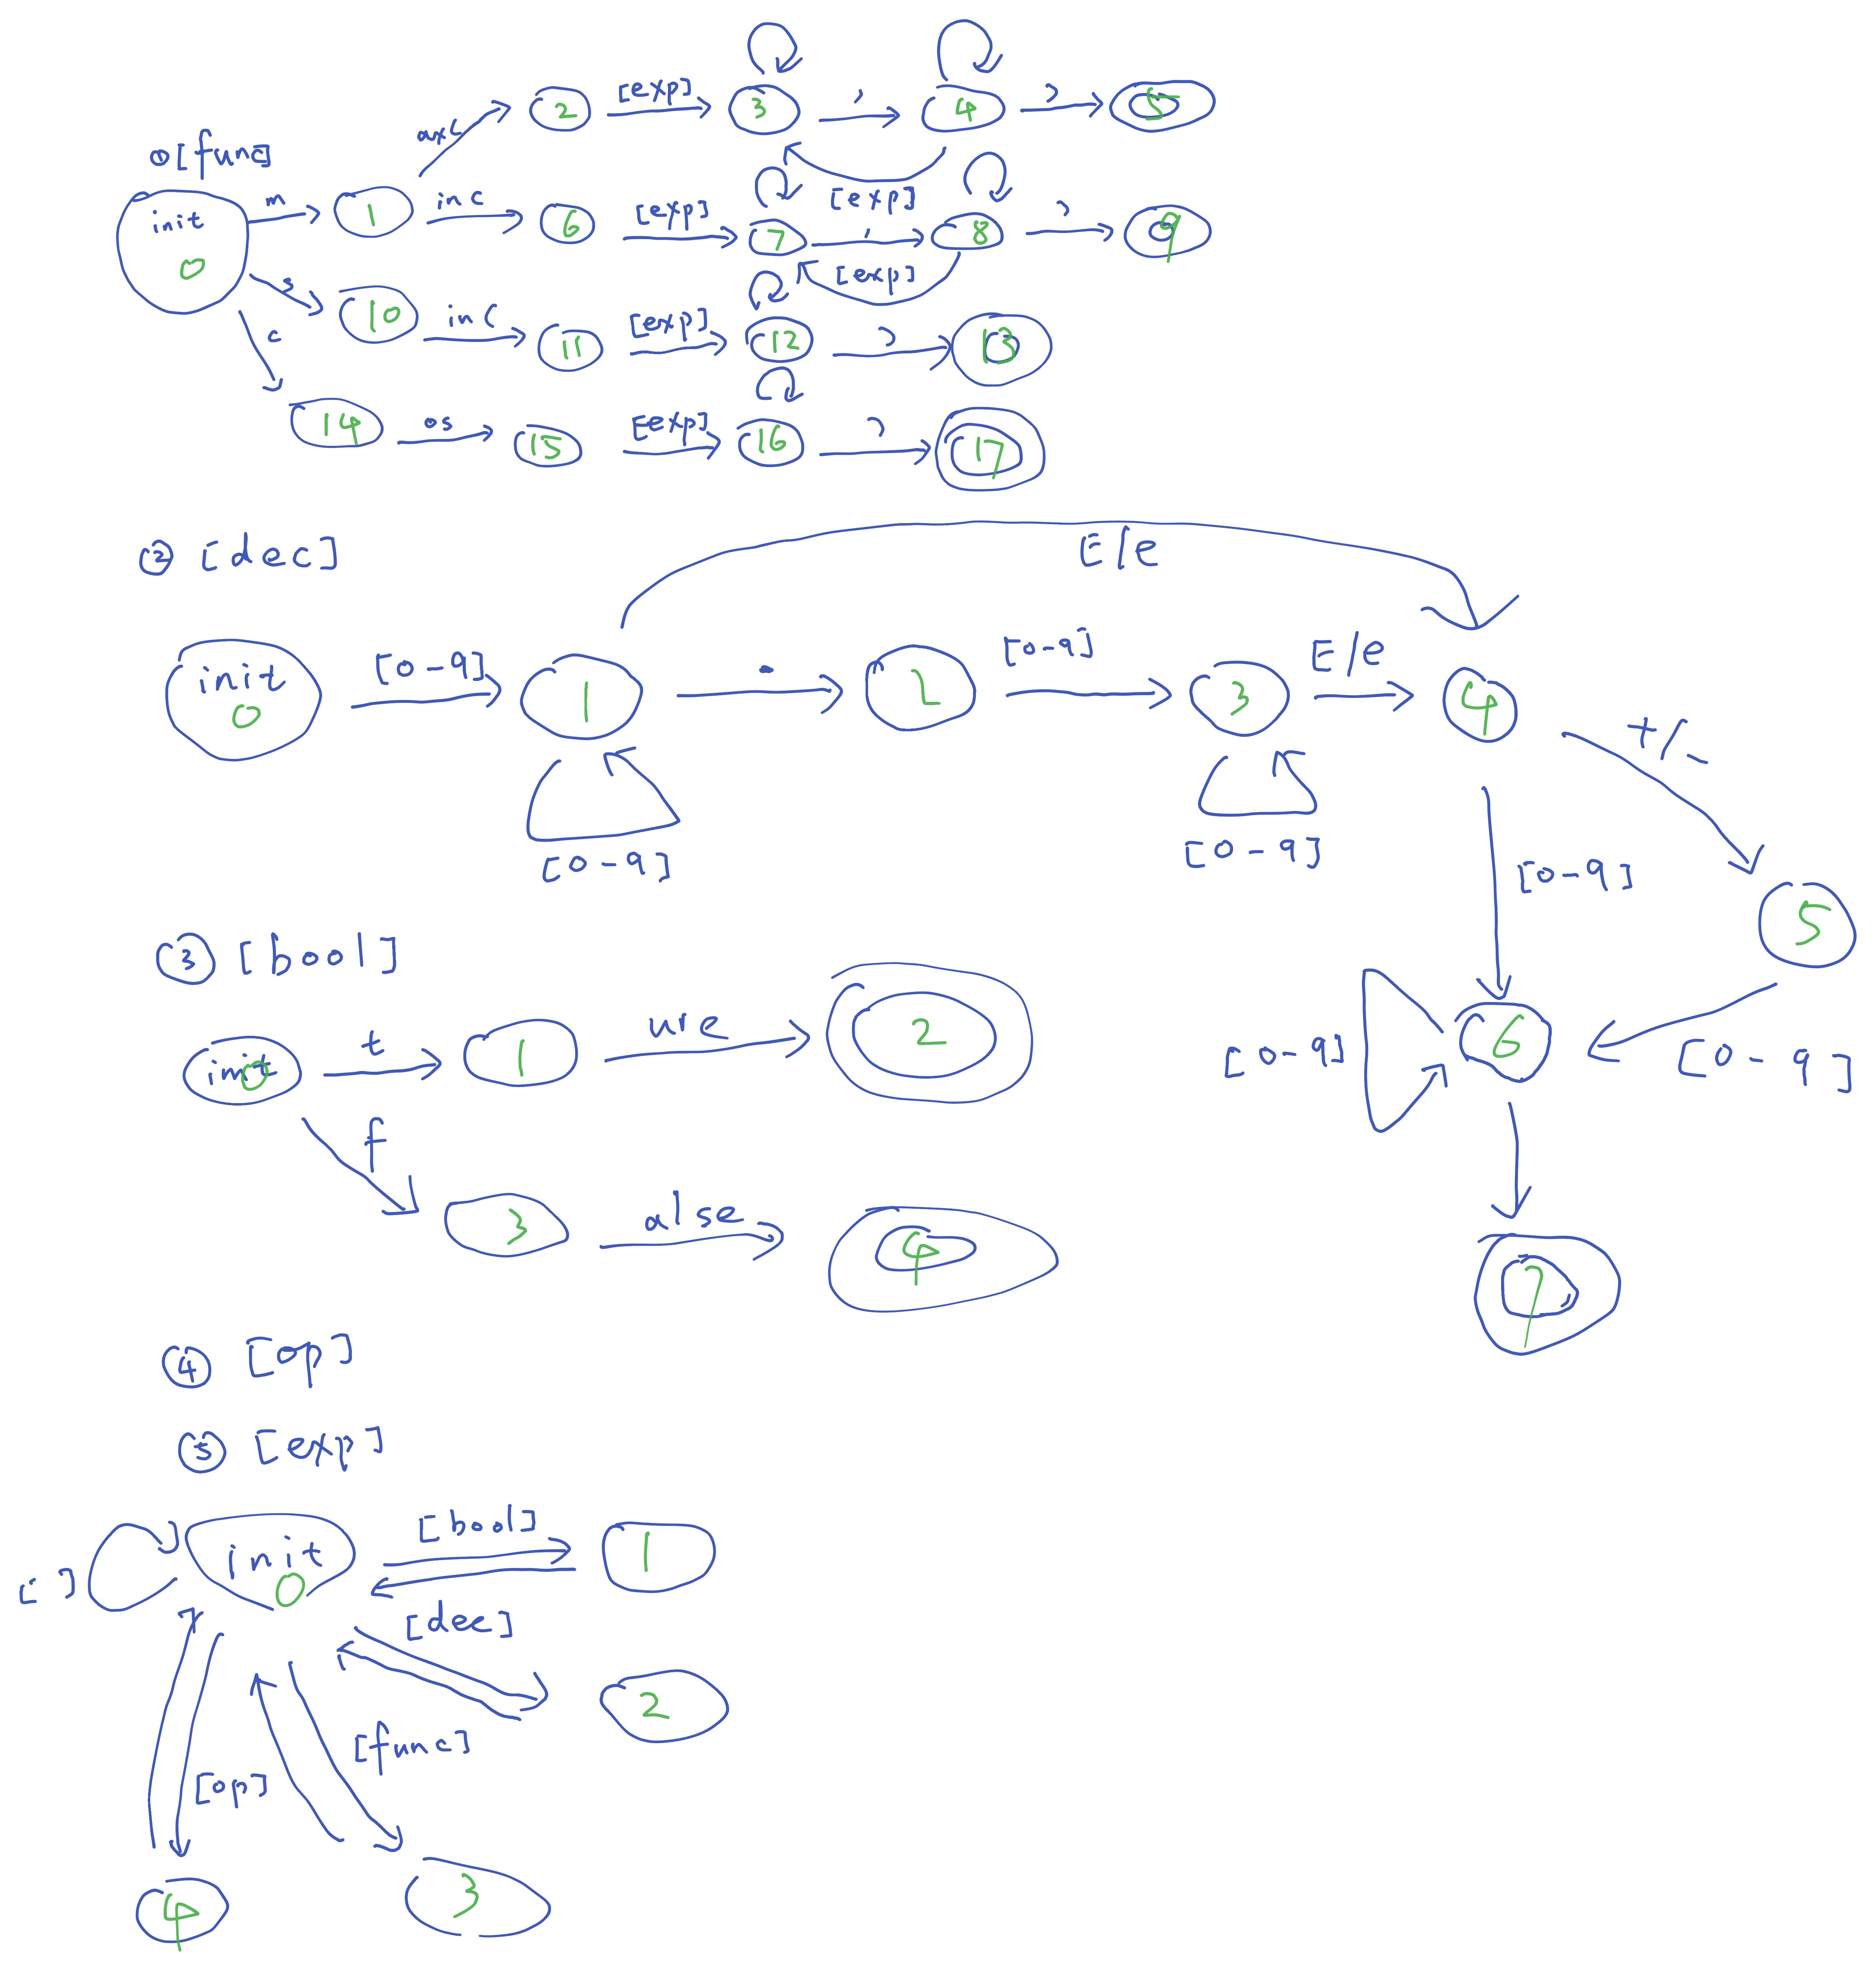 ① [func]
init 0 m 1 ax( 2 [exp] 3 , 4 ) 5
in( 6 [exp] 7 , 8 ) 9
[exp]
[exp]
s 10 in( 11 [exp] 12 ) 13
c 14 os 15 [exp] 16 ) 17
② [dec]
E/e
init 0 [0-9] 1 . 2 [0-9] 3 E/e 4 +/-
[0-9] [0-9] [0-9] 5
③ [bool]
init 0 t 1 ure 2 [0-9] 6 [0-9]
f 3 alse 4 7
④ [op]
⑤ [exp]
[ ] init 0 [bool] 1
[dec] 2
[func]
[op]
4 3